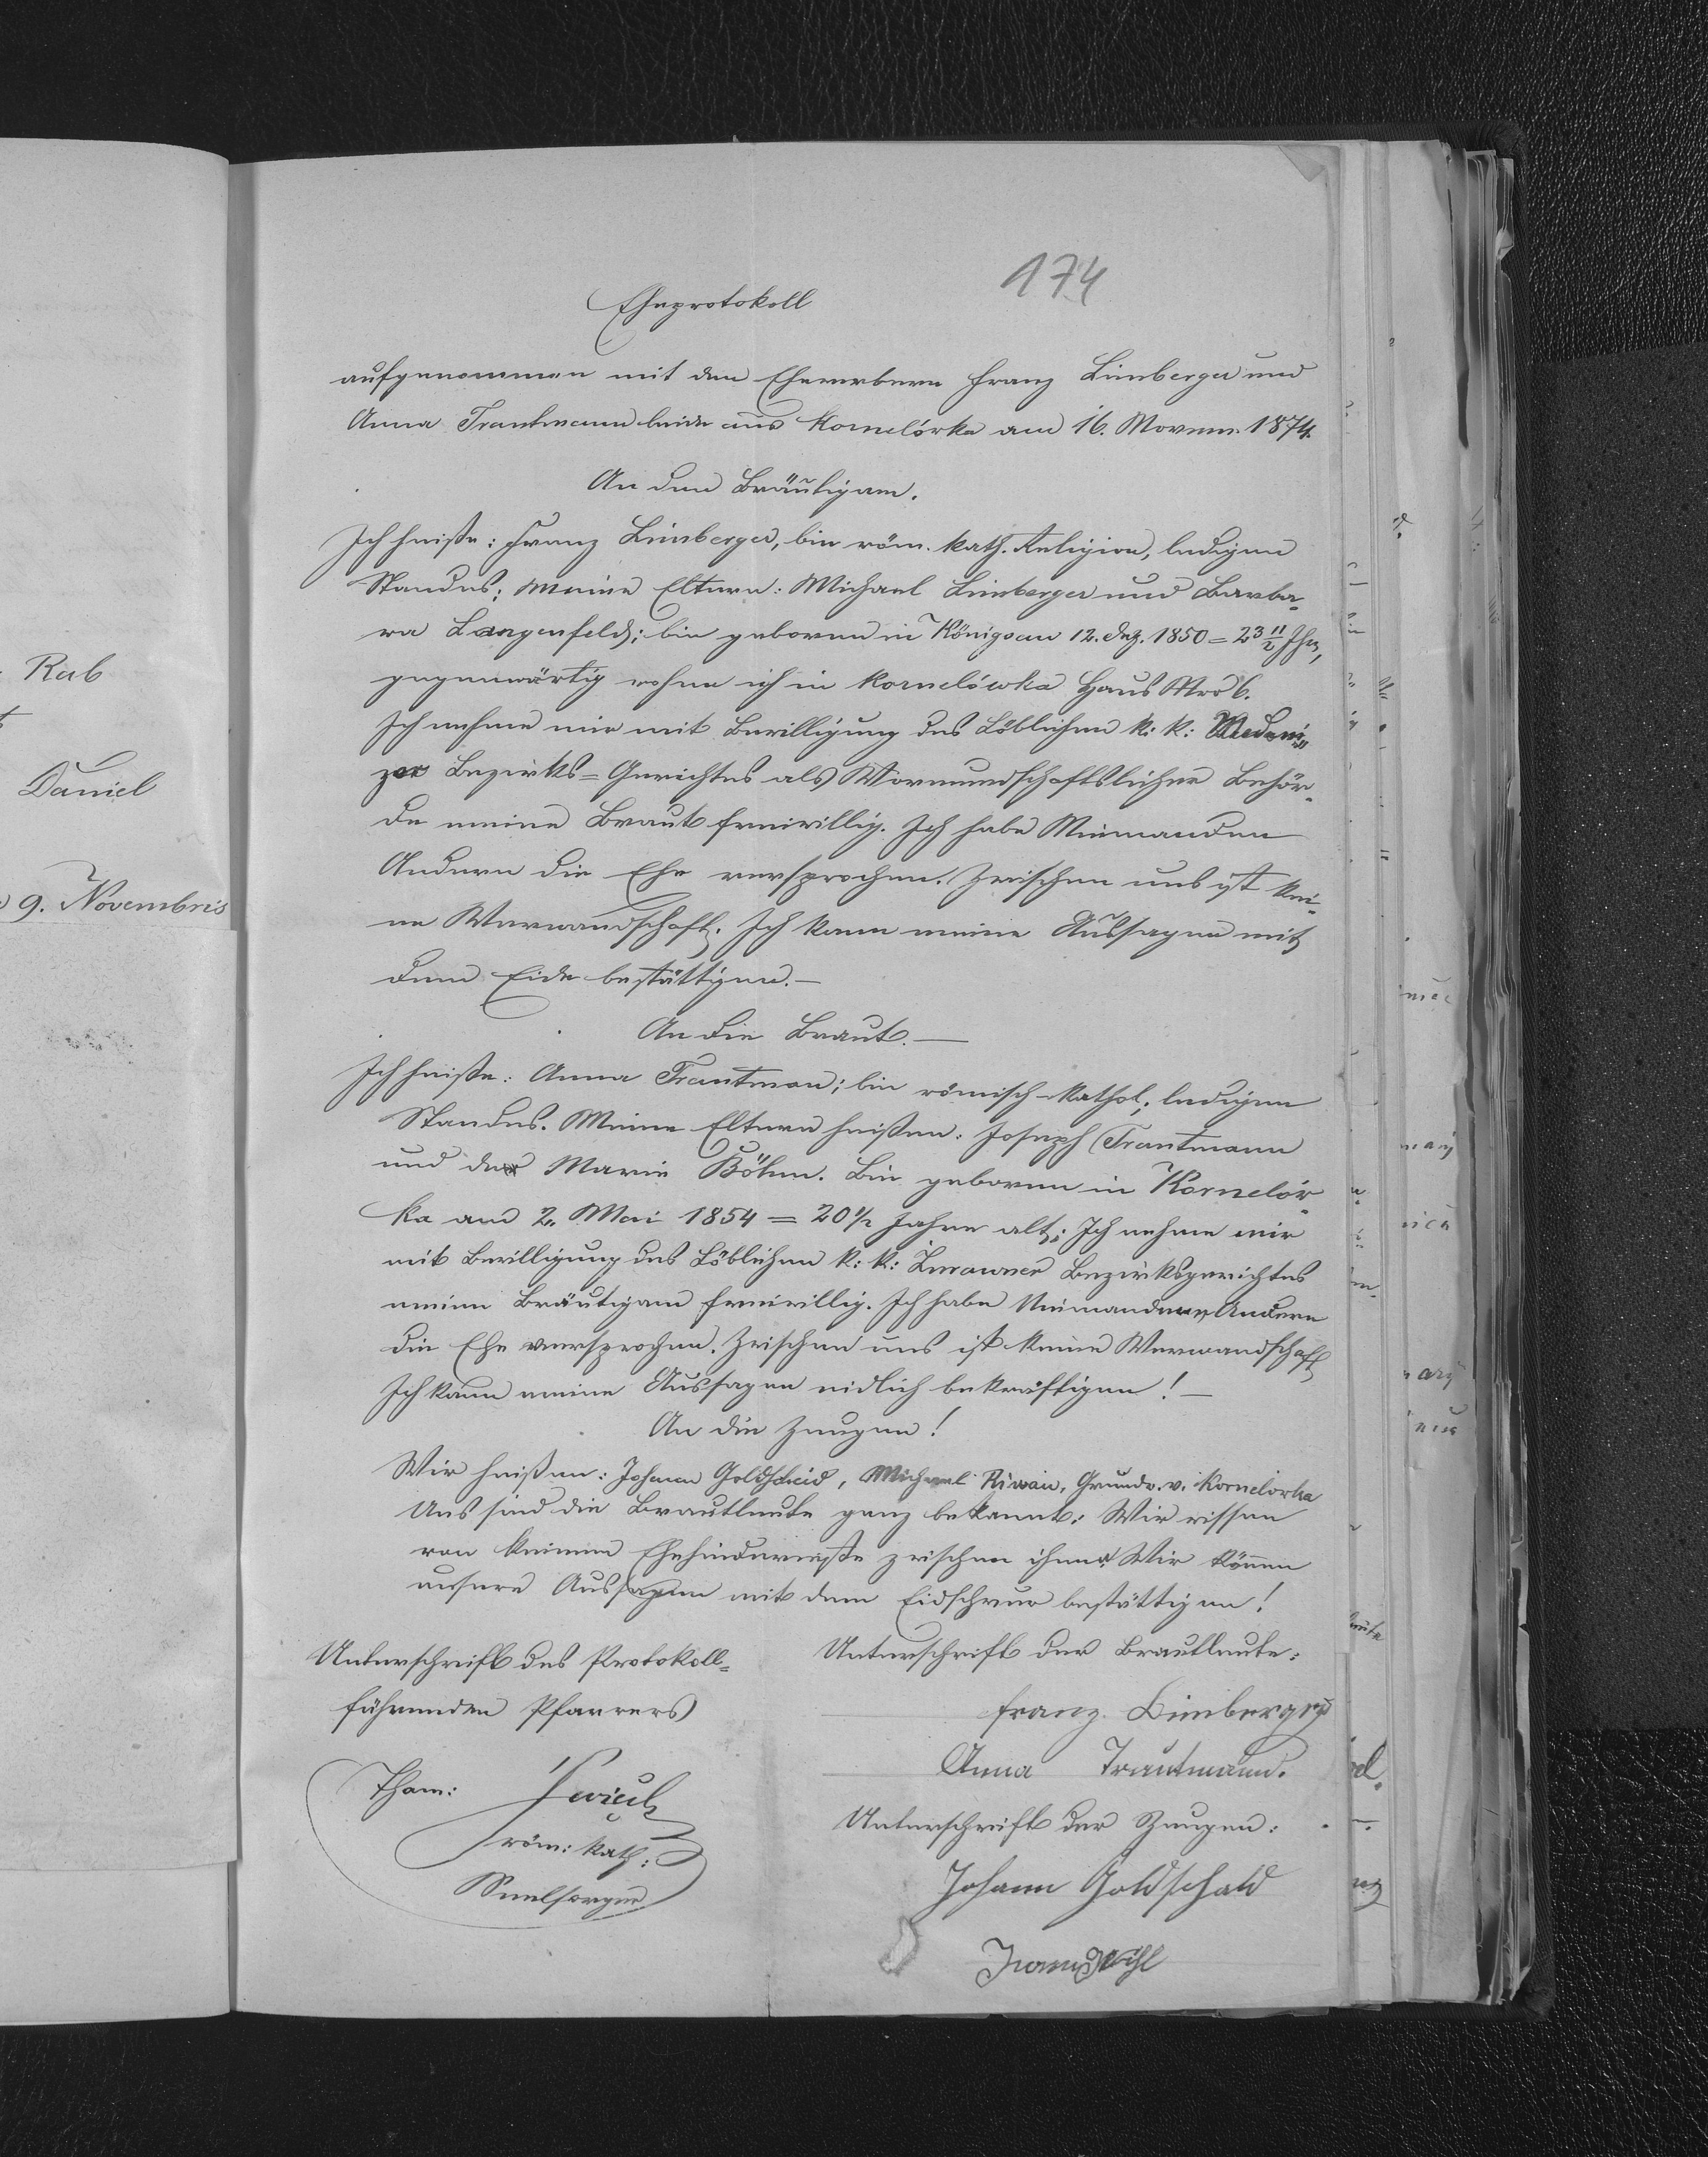 Rab
Daniel
9. Novembris
174
Eheprotokoll
aufgenommen mit den Ehewerbern Franz Limberger und
Anna Trautmann beide aus Kornelówka am 16. Novem. 1874.
An den Bräutigam.
Ich heiße: Franz Limberger, bin röm. kath. Religion, ledigen
Standes; meine Eltern: Michael Limberger und Barba-
ra Langenfeld; bin geboren in Königsau 12. Dez. 1850 = 23 11/2 Jhr,
gegenwärtig wohne ich in Kornelówka Haus Nro 6.
Ich nehme mir mit Bewilligung des Löblichen k: k: Medeni-
zer Bezirks=Gerichtes als Vormundschaftlicher Behör-
de meine Braut freiwillig. Ich habe Niemanden
Andern die Ehe versprochen. Zwischen uns ist kei-
ne Verwandschaft. Ich kann meine Aussagen mit
dem Eide bestättigen.—
An die Braut.—
Ich heiße: Anna Trautman; bin römisch-kathol; ledigen
Standes. Meine Eltern heißen: Joseph Trautmann
und der Marie Böhm. Bin geboren in Kornelów-
ka am 2. Mai 1854 = 20 1/2 Jahre alt; Ich nehme mir
mit Bewilligung des Löblichen k: k: Zurawner Bezirksgerichtes
meinen Bräutigam freiwillig. Ich habe Niemanden Andern
die Ehe versprochen. Zwischen uns ist keine Verwandschaft
Ich kann meine Aussagen eidlich bekräftigen!—
An die Zeugen!
Wir heißen: Johann Goldscheid, Michael, Grundw. v. Kornelowka
Uns sind die Brautleute ganz bekannt: Wir wissen
von keinem Ehehinderniße zwischen ihnen. Wir können
unsere Aussagen mit dem Eidschwur bestättigen!
Unterschrift des Protokoll-
führenden Pfarrers
Unterschrift der Brautleute:
Franz Limberger
Anna Trautmann.
röm: kath:
Seelsorger
Unterschrift der Zeugen:
Johann Goldschald